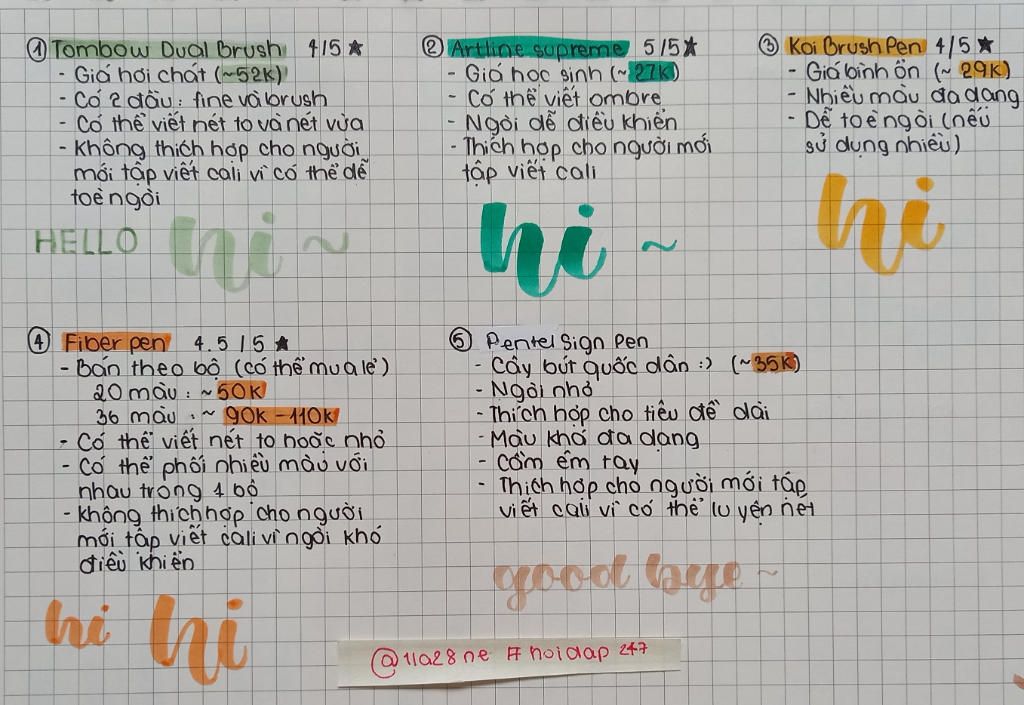 ① Tombow Dual Brush 4/5 ★
- Giá hơi chát (~52K)
- Có 2 đầu: fine và brush
- Có thể viết nét to và nét vừa
- Không thích hợp cho người
mới tập viết cali vì có thể dễ
toè ngòi
HELLO hi ~
② Artline supreme 5/5 ★
- Giá học sinh (~27K)
- Có thể viết ombre
- Ngòi dễ điều khiển
- Thích hợp cho người mới
tập viết cali
hi ~
③ Koi Brush Pen 4/5 ★
- Giá bình ổn (~ 29K)
- Nhiều màu đa dạng
- Dễ toè ngòi (nếu
sử dụng nhiều)
hi
④ Fiber pen 4.5/5 ★
- Bán theo bộ (có thể mua lẻ)
20 màu: ~50K
36 màu: ~ 90K-110K
- Có thể viết nét to hoặc nhỏ
- Có thể phối nhiều màu với
nhau trong 1 bộ
- Không thích hợp cho người
mới tập viết cali vì ngòi khó
điều khiển
hi hi
⑤ Pentel Sign Pen
- Cây bút quốc dân :) (~35K)
- Ngòi nhỏ
- Thích hợp cho tiêu đề dài
- Màu khá đa dạng
- Cầm êm tay
- Thích hợp cho người mới tập
viết cali vì có thể luyện nét
good bye ~
@11a28ne #hoidap 247